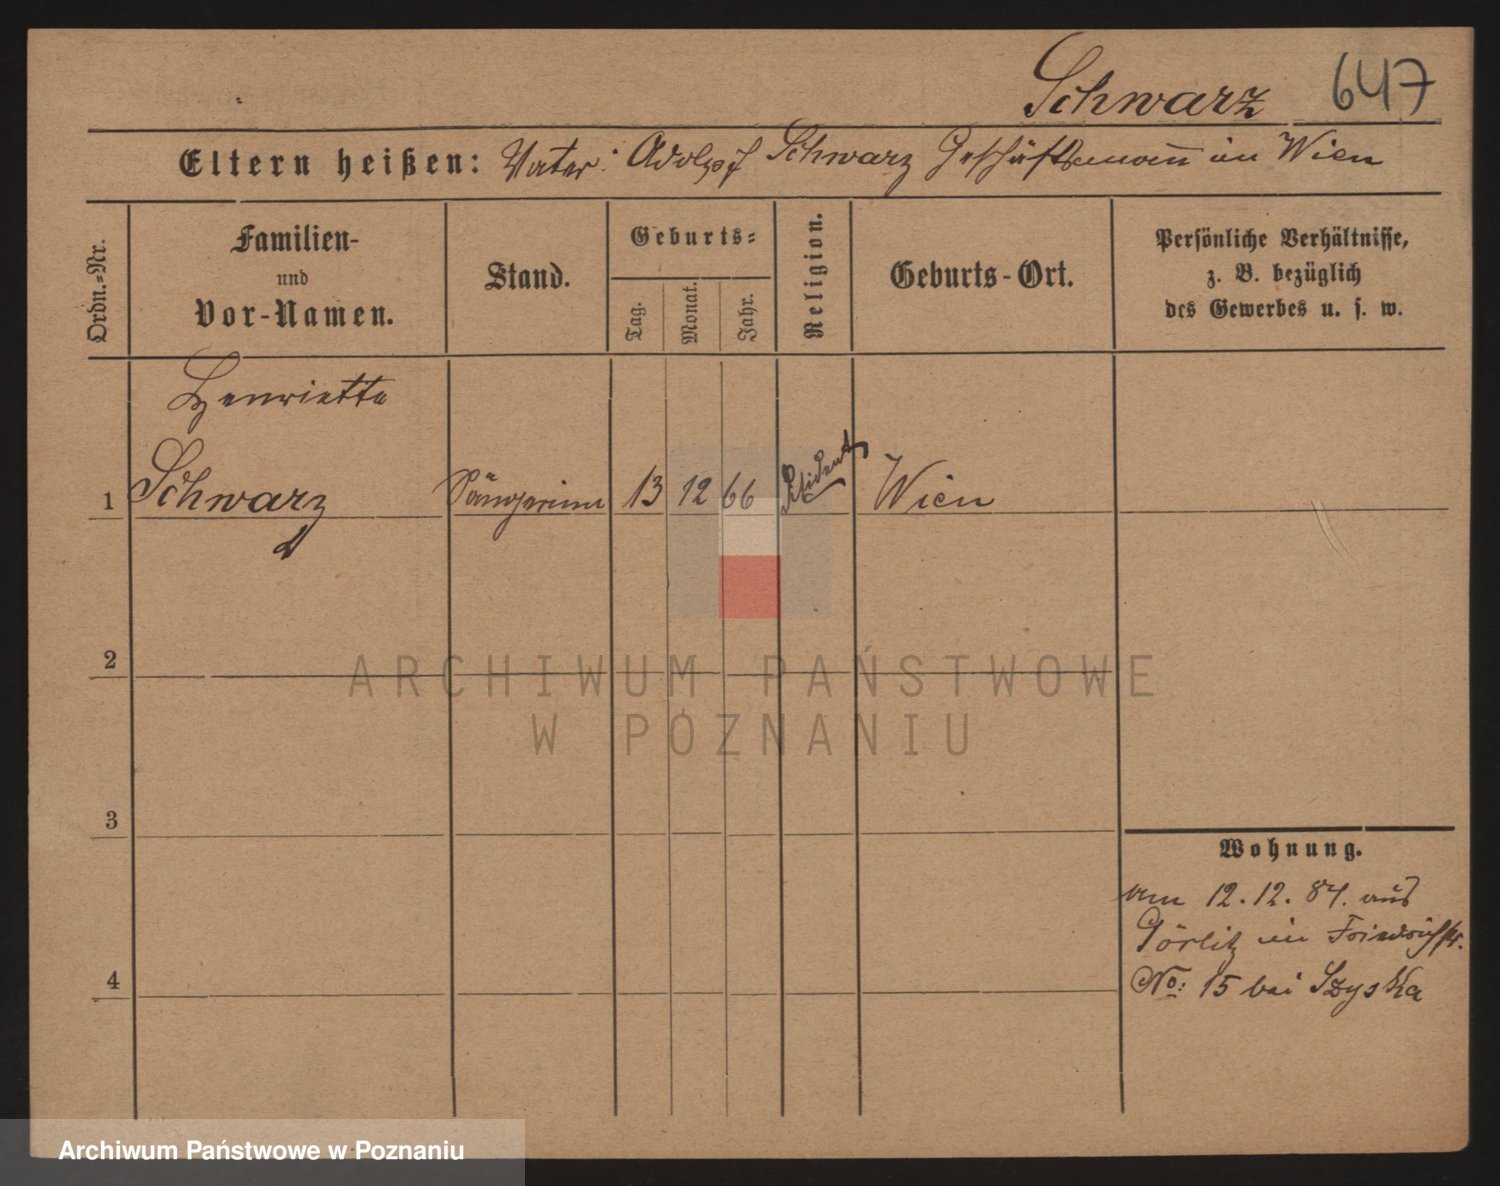 Schwarz 647
Eltern heißen: Vater: Adolpf Schwarz Geschäftsmann in Wien
Ordn.-Nr.
Familien-
und
Vor-Namen.
Stand.
Geburts-
Tag.
Monat.
Jahr.
Religion.
Geburts-Ort.
Persönliche Verhältnisse,
z. B. bezüglich
des Gewerbes u. s. w.
Henriette
1 Schwarz Sängerinn 13 12 66 Wien
2
ARCHIWUM PAŃSTWOWE
W POZNANIU
3
Wohnung.
am 12.12.84. aus
Görlitz in Friedrichstr.
4
No: 15 bei Szyska
Archiwum Państwowe w Poznaniu